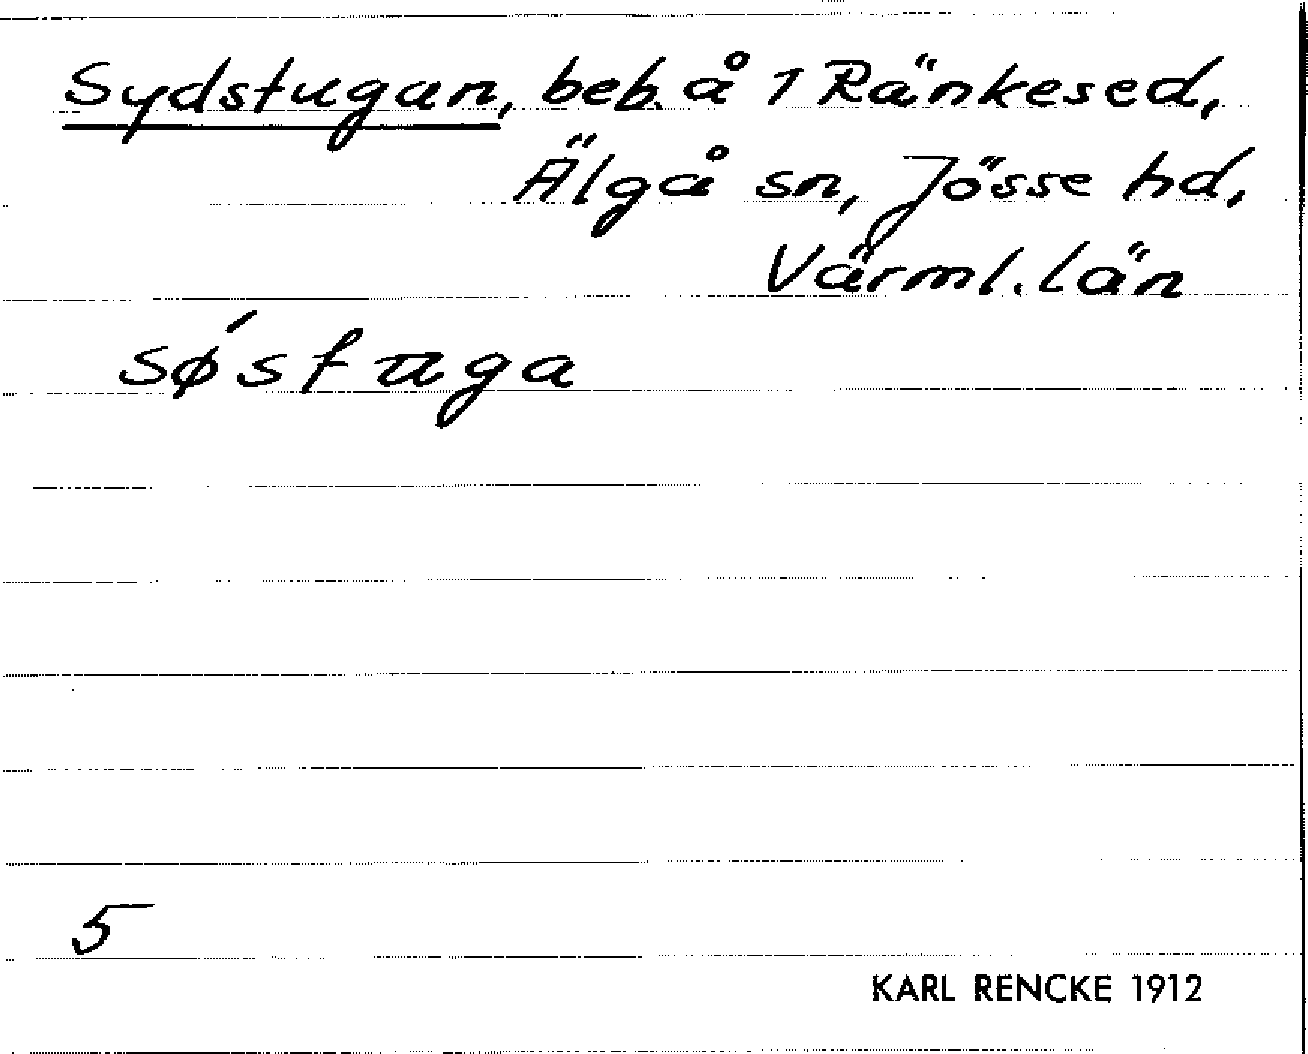 Sydstugan, beb. å 1 Ränkesed,
Älgå sn, Jösse hd,
Värml. län
sǿstuga
5
KARL RENCKE 1912